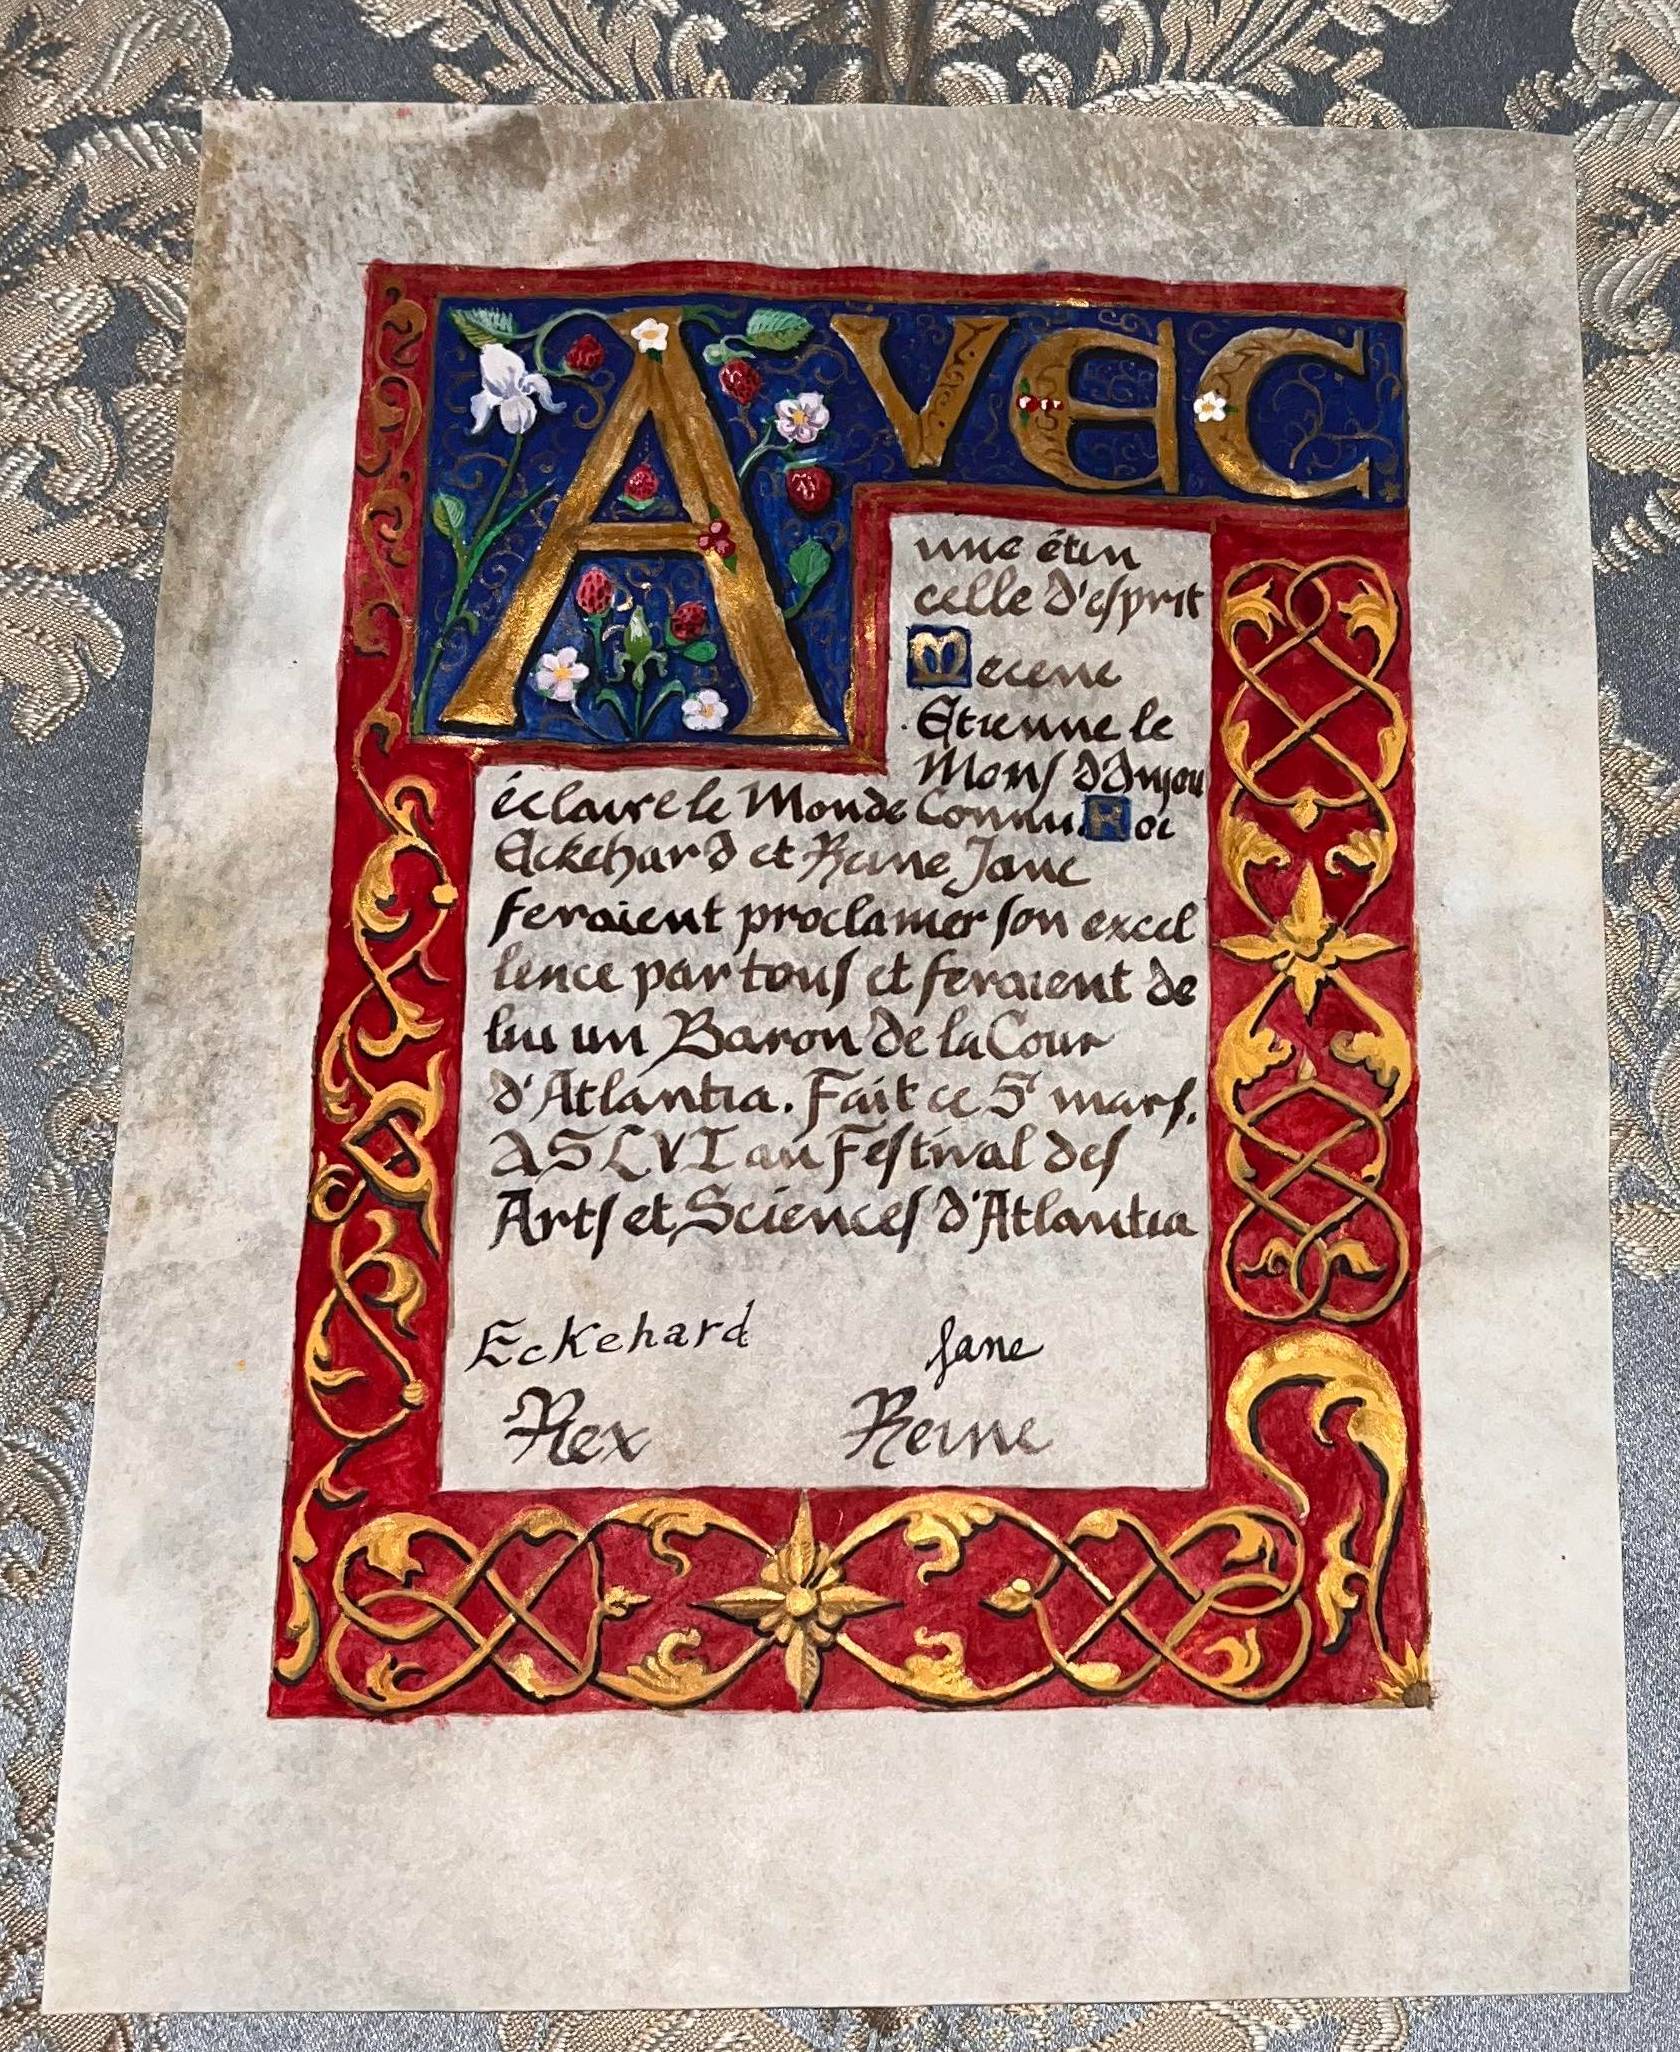 AVEC
une étin
celle d'esprit
Mecene
Etienne le
Mons d'Anjou
éclaire le Monde Connu. Roi
Eckehard et Reine Jane
feraient proclamer son excel
lence par tous et feraient de
lui un Baron de la Cour
d'Atlantia. Fait ce 5 mars,
AS LVI au Festival des
Arts et Sciences d'Atlantia
Eckehard Jane
Rex Reine